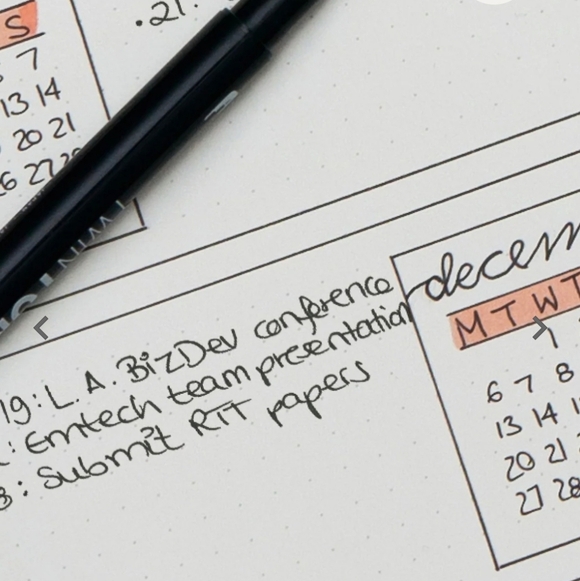 S
7
13 14
20 21
6 27 28
•21:
19: L.A. BizDev conference
: Emtech team presentation
3: Submit RIT papers
decem
M T W T
1
6 7 8
13 14 1
20 21
27 28